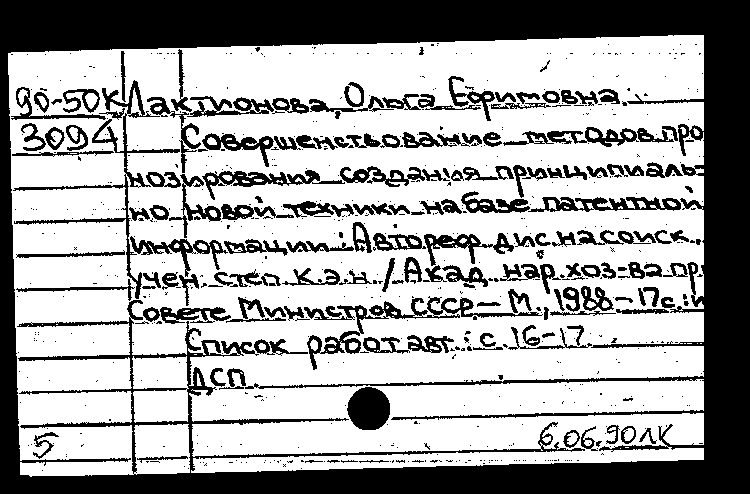 90-50К Лактионова, Ольга Ефимовна.
3094 Совершенствование методов про
нозирования создания принципиаль-
но новой техники на базе патентной
информации : Автореф. дис. на соиск.
учен. степ. к.э.н. / Акад. нар. хоз-ва пр
Совете Министров СССР. — М., 1988 - 17с. : и
Список работ авт.: с. 16-17.
ДСП.
5 6.06.90ЛК